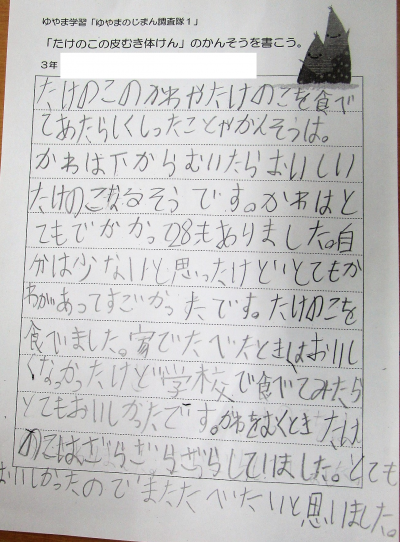 ゆやま学習「ゆやまのじまん調査隊1」
「たけのこの皮むき体けん」のかんそうを書こう。
3年
たけのこのかわやたけのこを食べ
てあたらしくしったことやかんそうは。
かわは下からむいたらおいしい
たけのこなるそうです。かわはと
てもでかかった28もありました。自
分は少ないと思ったけどとてもか
わがあってすごかったです。たけのこを
食べました。家でたべたときはおいし
くなかったけど学校で食べてみたら
とてもおいしかったです。かわをむくときたけ
のこは、ざらざらざらしていました。とても
おいしかったのでまたたべたいと思いました。